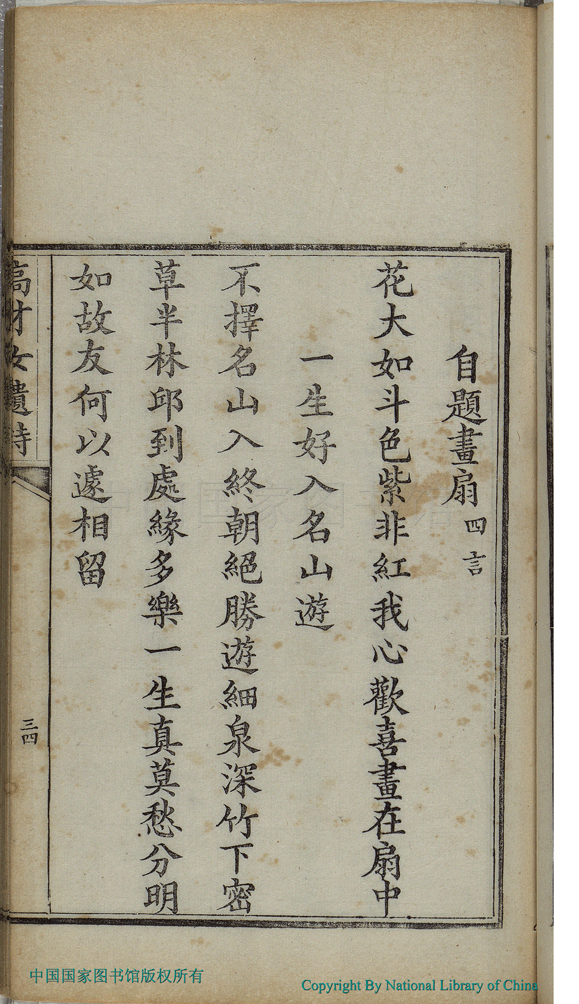 自題畫扇 四言
花大如斗色紫非紅我心歡喜畫在扇中
一生好入名山遊
不擇名山入終朝絕勝遊細泉深竹下密
草半林邱到處緣多樂一生真莫愁分明
如故友何以遽相留
高才女遺詩
三四
中国国家图书馆版权所有
Copyright By National Library of China